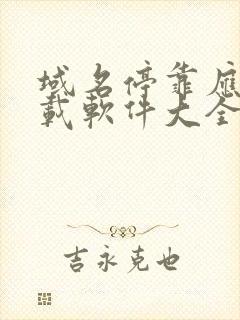 域名停靠應
載軟件大全
吉永克也